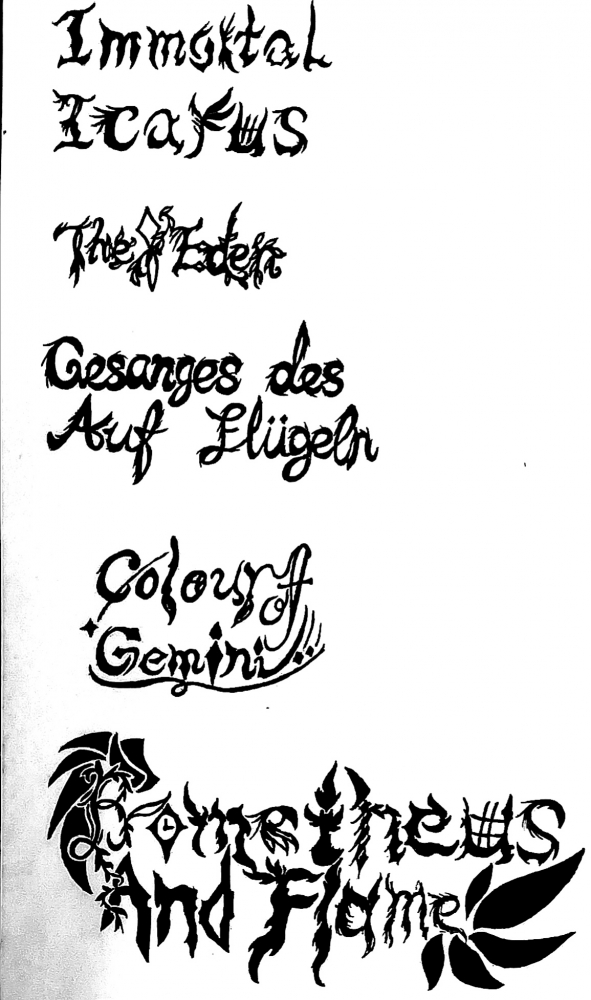 Immortal
Icarus
The Eden
Gesanges des
Auf Flügeln
Colour of
Gemini
Prometheus
And Flame